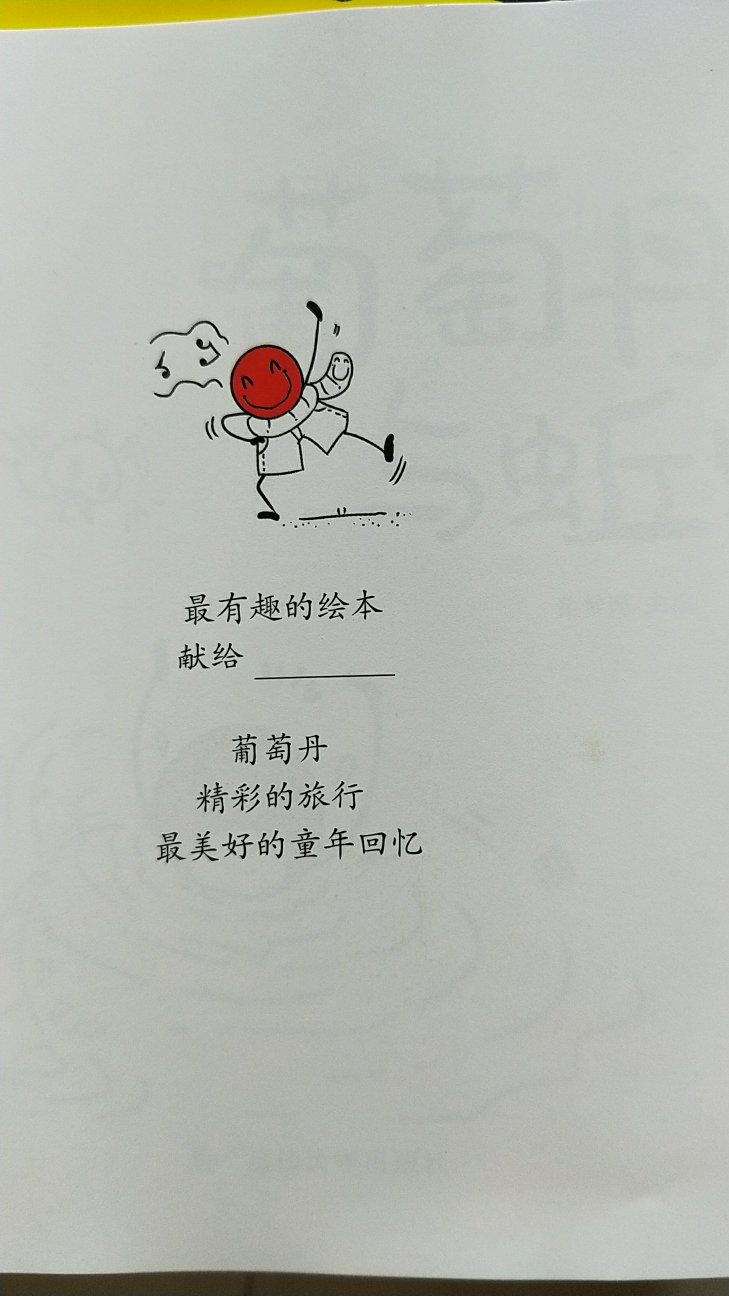 最有趣的绘本
献给
葡萄丹
精彩的旅行
最美好的童年回忆